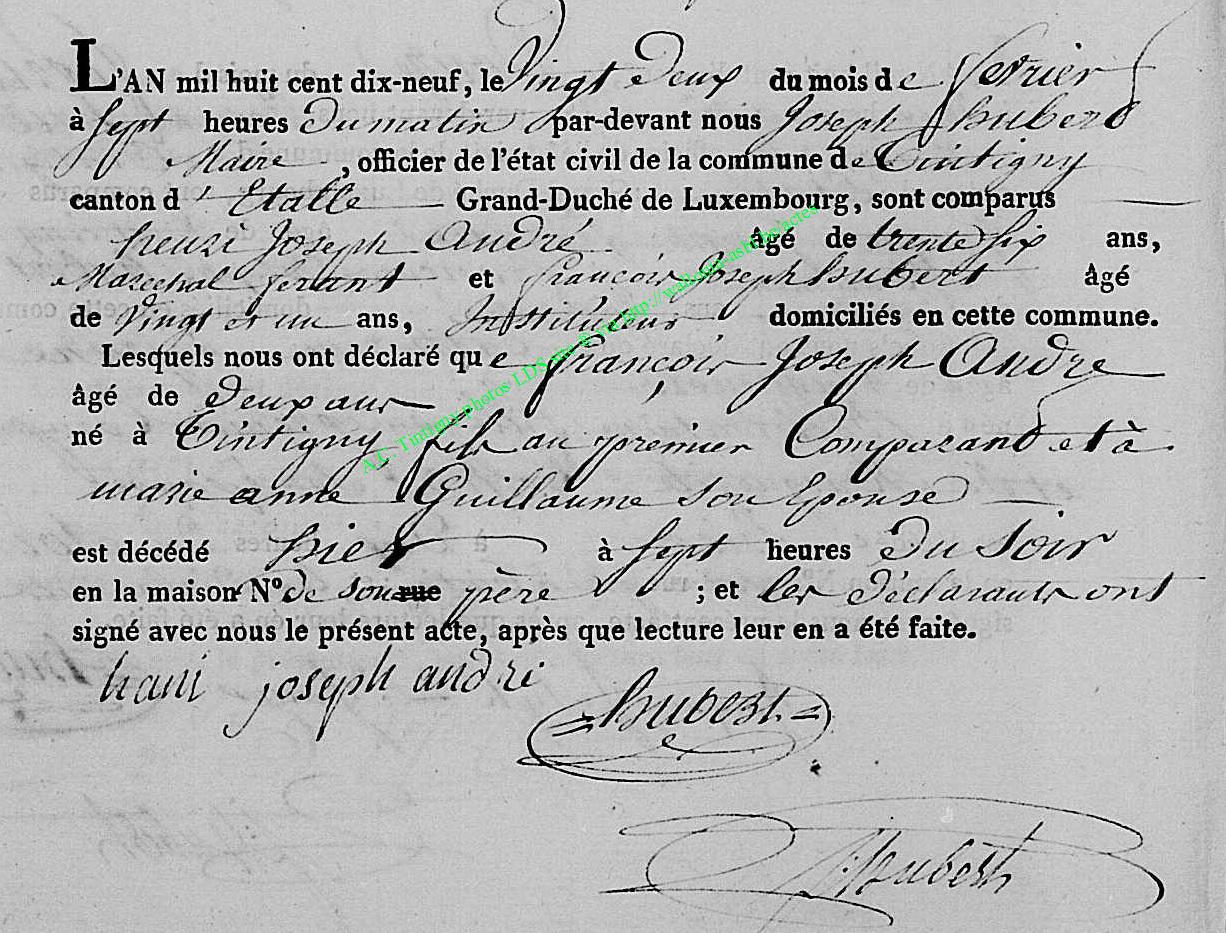 L'AN mil huit cent dix-neuf, le Vingt deux du mois de fevrier
à Sept heures Du matin par-devant nous Joseph hubert
Maire, officier de l'état civil de la commune de Tintigny
canton d'Etalle Grand-Duché de Luxembourg, sont comparus
henri Joseph André âgé de trente six ans,
Marechal ferant et françois Joseph hubert âgé
de Vingt et un ans, Instituteur domiciliés en cette commune.
Lesquels nous ont déclaré que françois Joseph André
âgé de Deux ans
né à Tintigny, fils au premier Comparand et à
marie anne Guillaume son Epouse
est décédé hier à Sept heures Du Soir
en la maison N° de son rue père ; et les Déclarants ont
signé avec nous le présent acte, après que lecture leur en a été faite.
hani joseph andri
hubert
Hubert
A.C. Tintigny photos LDS via http://wallonia-asbl.be/actes